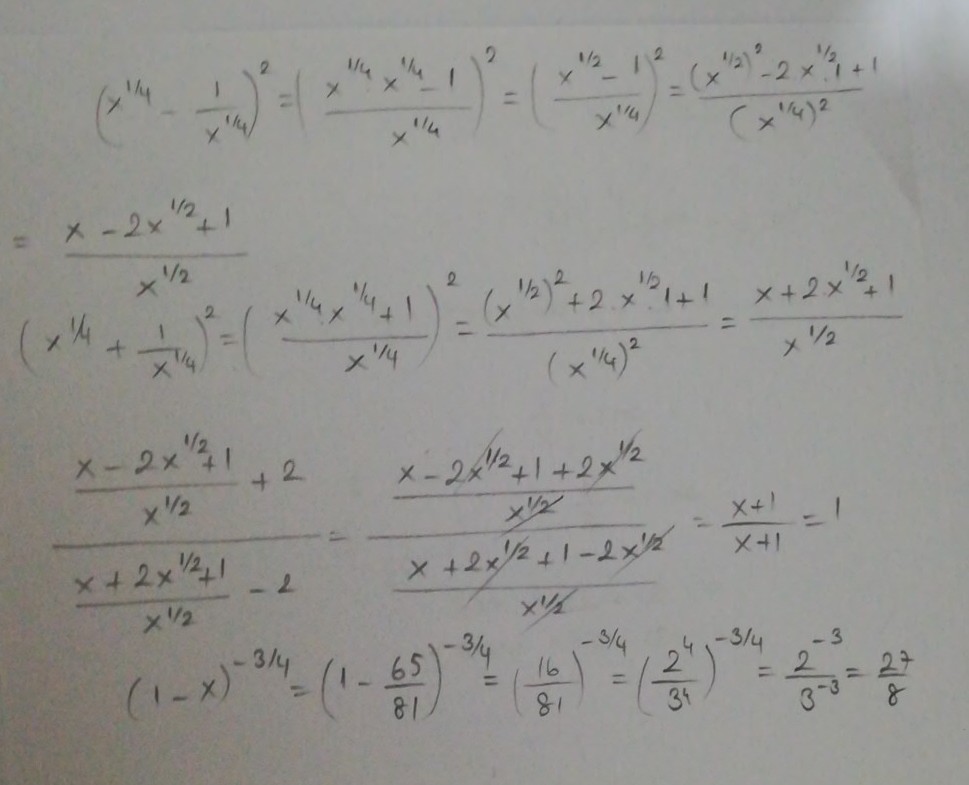 (x^{1/4} - \frac{1}{x^{1/4}})^2 = (\frac{x^{1/4} \cdot x^{1/4} - 1}{x^{1/4}})^2 = (\frac{x^{1/2} - 1}{x^{1/4}})^2 = \frac{(x^{1/2})^2 - 2 x^{1/2} \cdot 1 + 1}{(x^{1/4})^2}
= \frac{x - 2x^{1/2} + 1}{x^{1/2}}
(x^{1/4} + \frac{1}{x^{1/4}})^2 = (\frac{x^{1/4} \cdot x^{1/4} + 1}{x^{1/4}})^2 = \frac{(x^{1/2})^2 + 2 \cdot x^{1/2} \cdot 1 + 1}{(x^{1/4})^2} = \frac{x + 2 \cdot x^{1/2} + 1}{x^{1/2}}
\frac{\frac{x - 2x^{1/2} + 1}{x^{1/2}} + 2}{\frac{x + 2x^{1/2} + 1}{x^{1/2}} - 2} = \frac{\frac{x - 2x^{1/2} + 1 + 2x^{1/2}}{x^{1/2}}}{\frac{x + 2x^{1/2} + 1 - 2x^{1/2}}{x^{1/2}}} = \frac{x+1}{x+1} = 1
(1 - x)^{-3/4} = (1 - \frac{65}{81})^{-3/4} = (\frac{16}{81})^{-3/4} = (\frac{2^4}{3^4})^{-3/4} = \frac{2^{-3}}{3^{-3}} = \frac{27}{8}